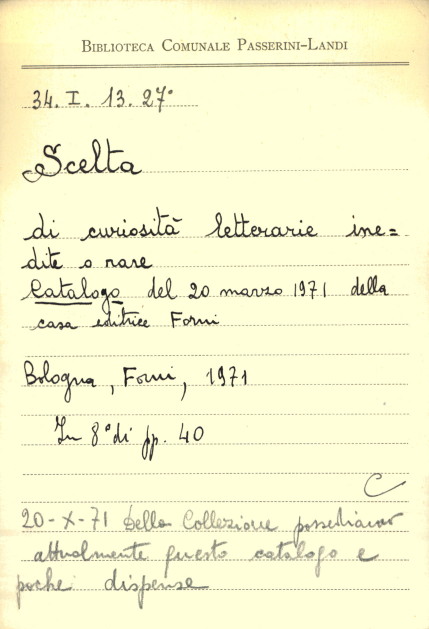 BIBLIOTECA COMUNALE PASSERINI-LANDI
34. I. 13. 27°
Scelta
di curiosità letterarie ine=
dite o rare
Catalogo del 20 marzo 1971 della
casa editrice Forni
Bologna, Forni, 1971
In 8° di pp. 40
C
20-X-71 Della Collezione possediamo
attualmente questo catalogo e
poche dispense